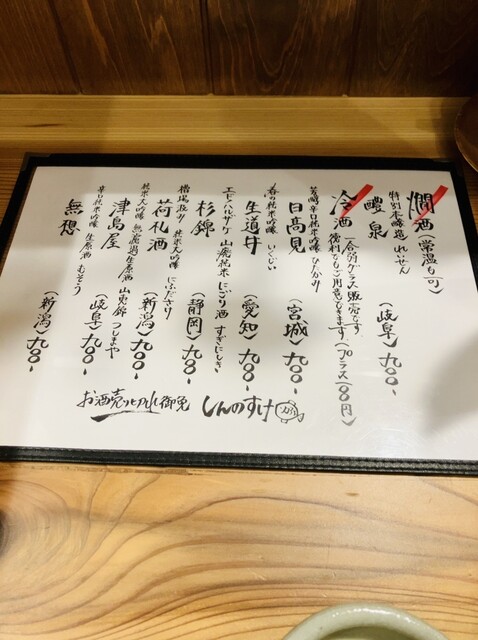 燗酒(常温も可)
特別本醸造 れいせん
醴泉 (岐阜) 九〇〇-
冷酒 一合弱グラス販売です
徳利でもご用意できます(プラス100円)
芳醇辛口純米吟醸 ひたかみ
日高見 (宮城) 九〇〇-
春の純米吟醸 いくじい
生道井 (愛知) 九〇〇-
エドノハルザケ 山廃純米 にごり酒 すぎにしき
杉錦 (静岡) 九〇〇-
槽場汲み 純米大吟醸 にふださけ
荷札酒 (新潟) 九〇〇-
純米大吟醸 無濾過生原酒 山田錦 つしまや
津島屋 (岐阜) 九〇〇-
辛口純米吟醸 生原酒 むそう
無想 (新潟) 九〇〇-
お酒売り切れ御免 しんのすけ